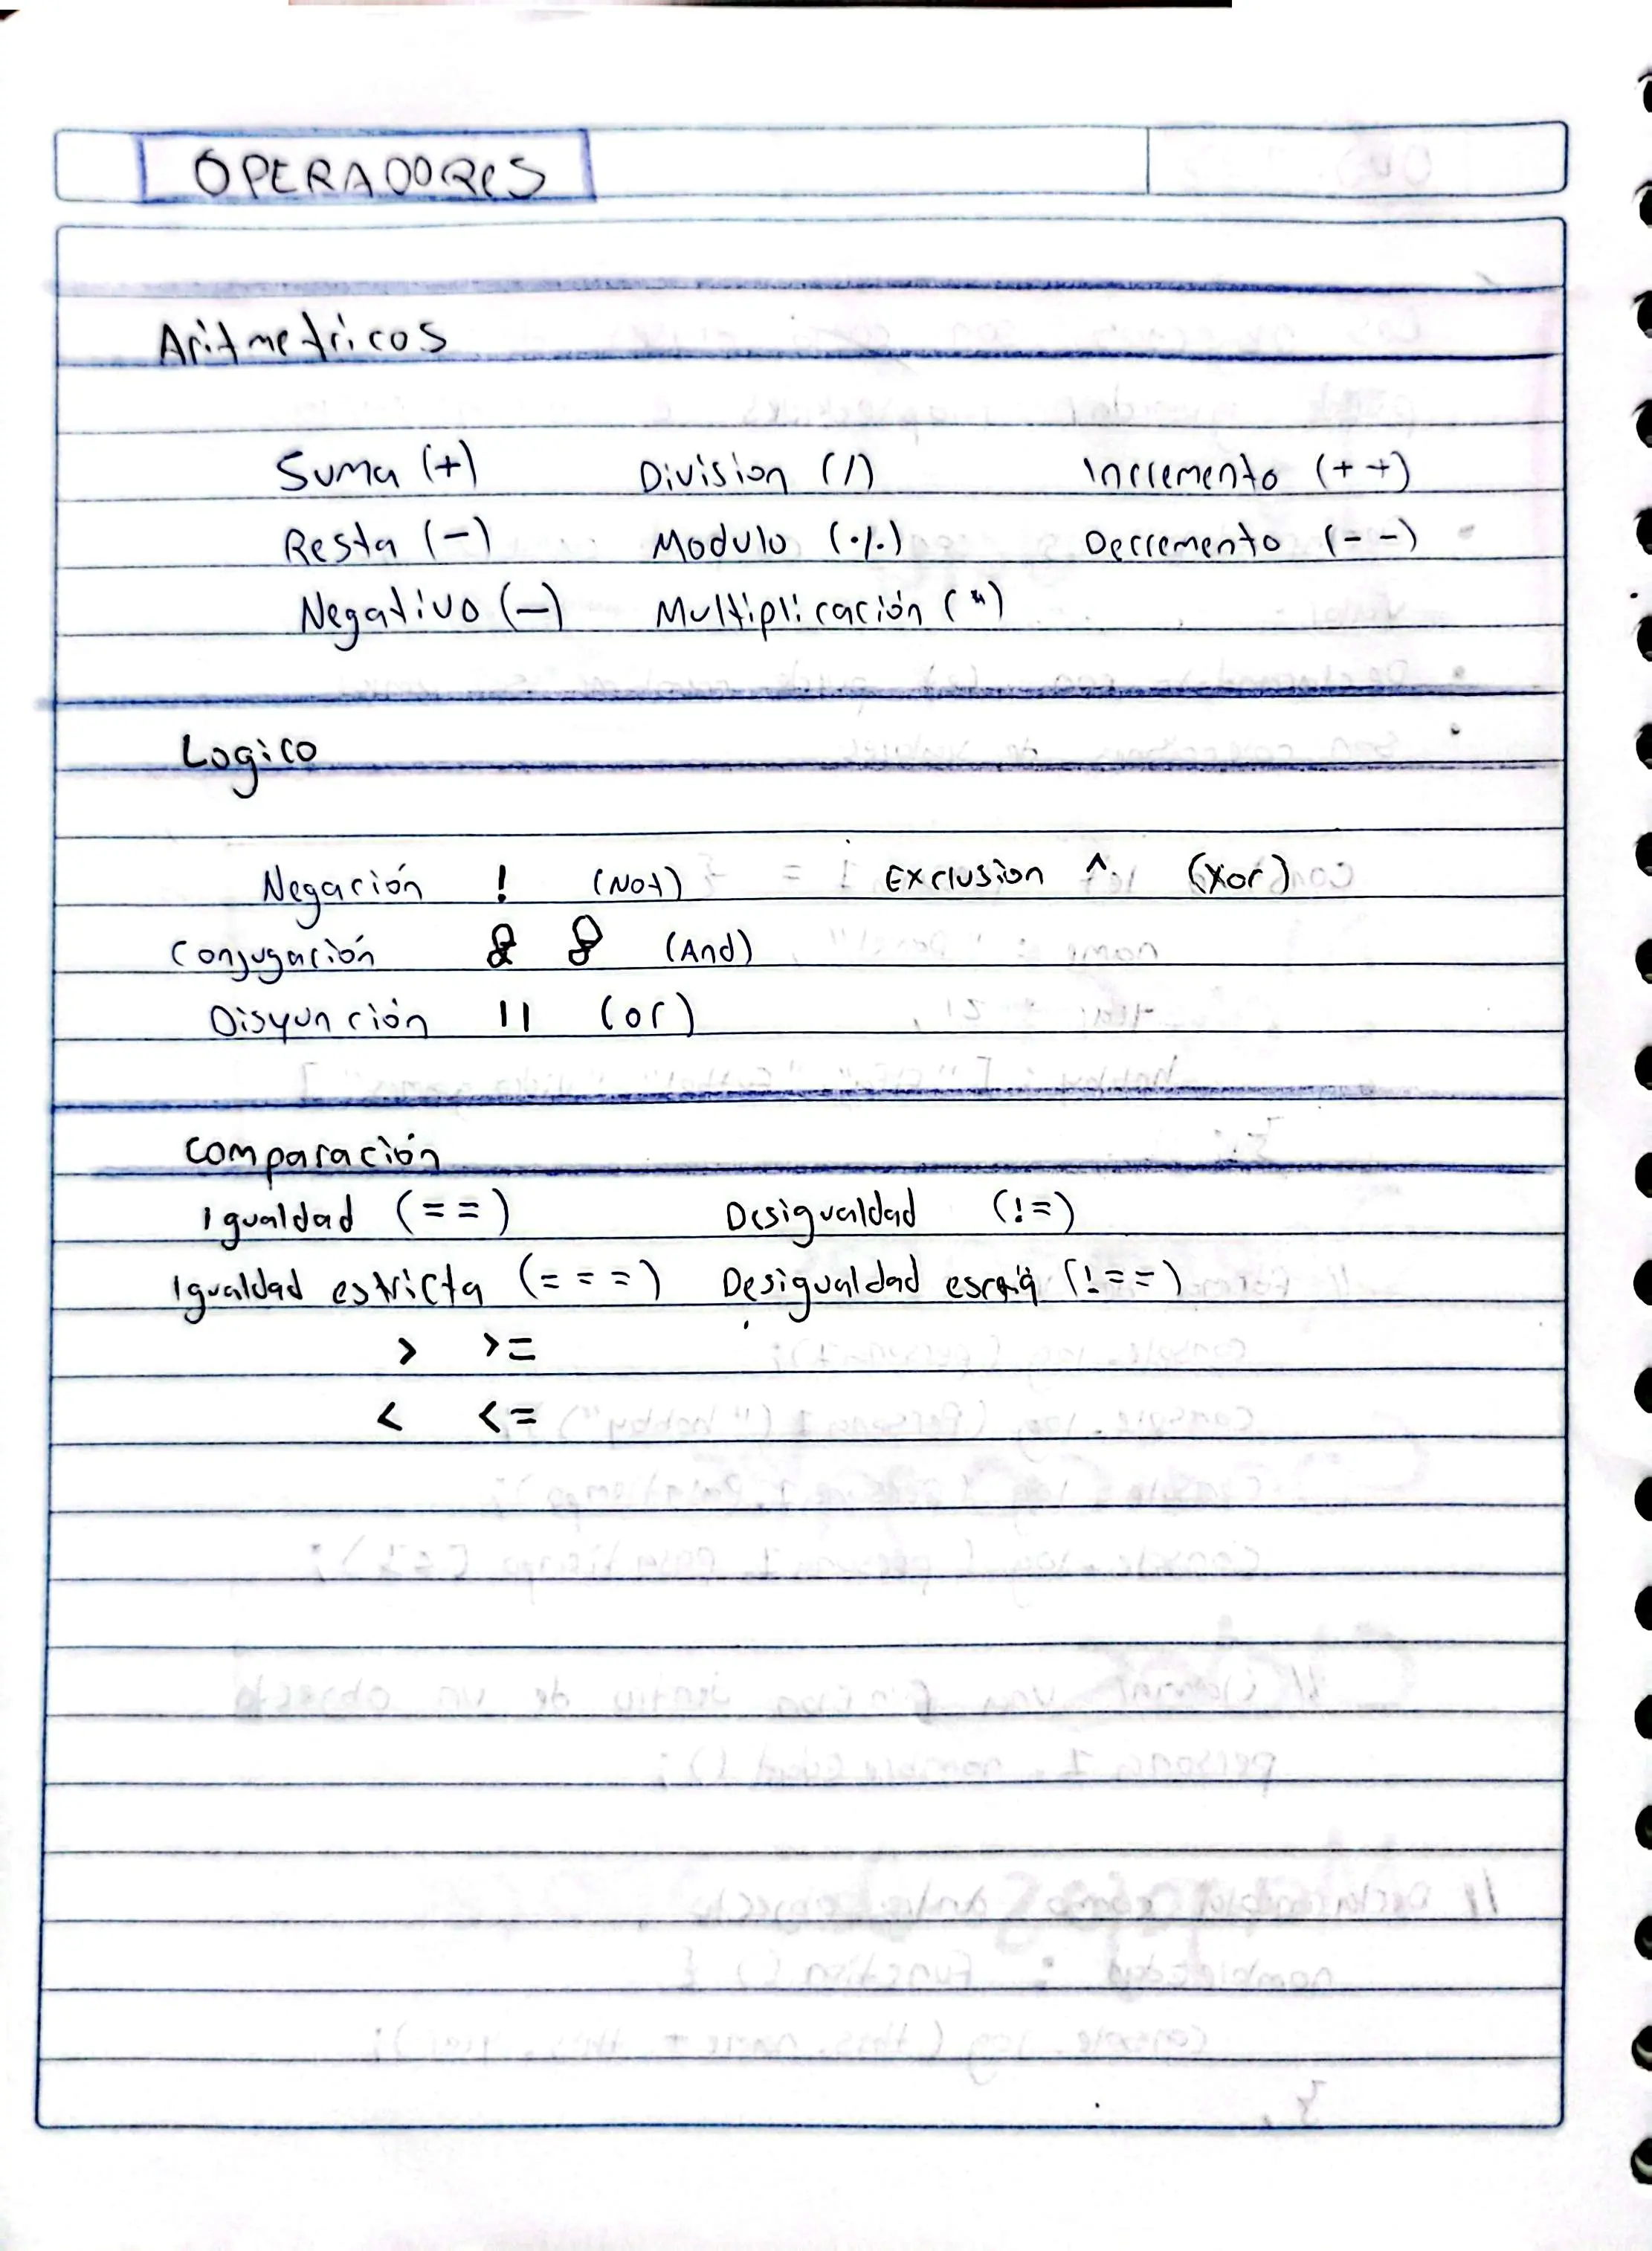 OPERADORES
Aritmetricos
Suma (+) Division (/) Incremento (++)
Resta (-) Modulo (%) Decremento (--)
Negativo (-) Multiplicación (*)
Logico
Negación ! (Not) Exclusion ^ (Xor)
Conjugación & & (And)
Disyunción || (or)
Comparación
Igualdad (==) Desigualdad (!=)
Igualdad estricta (===) Desigualdad (!==)
> >=
< <=